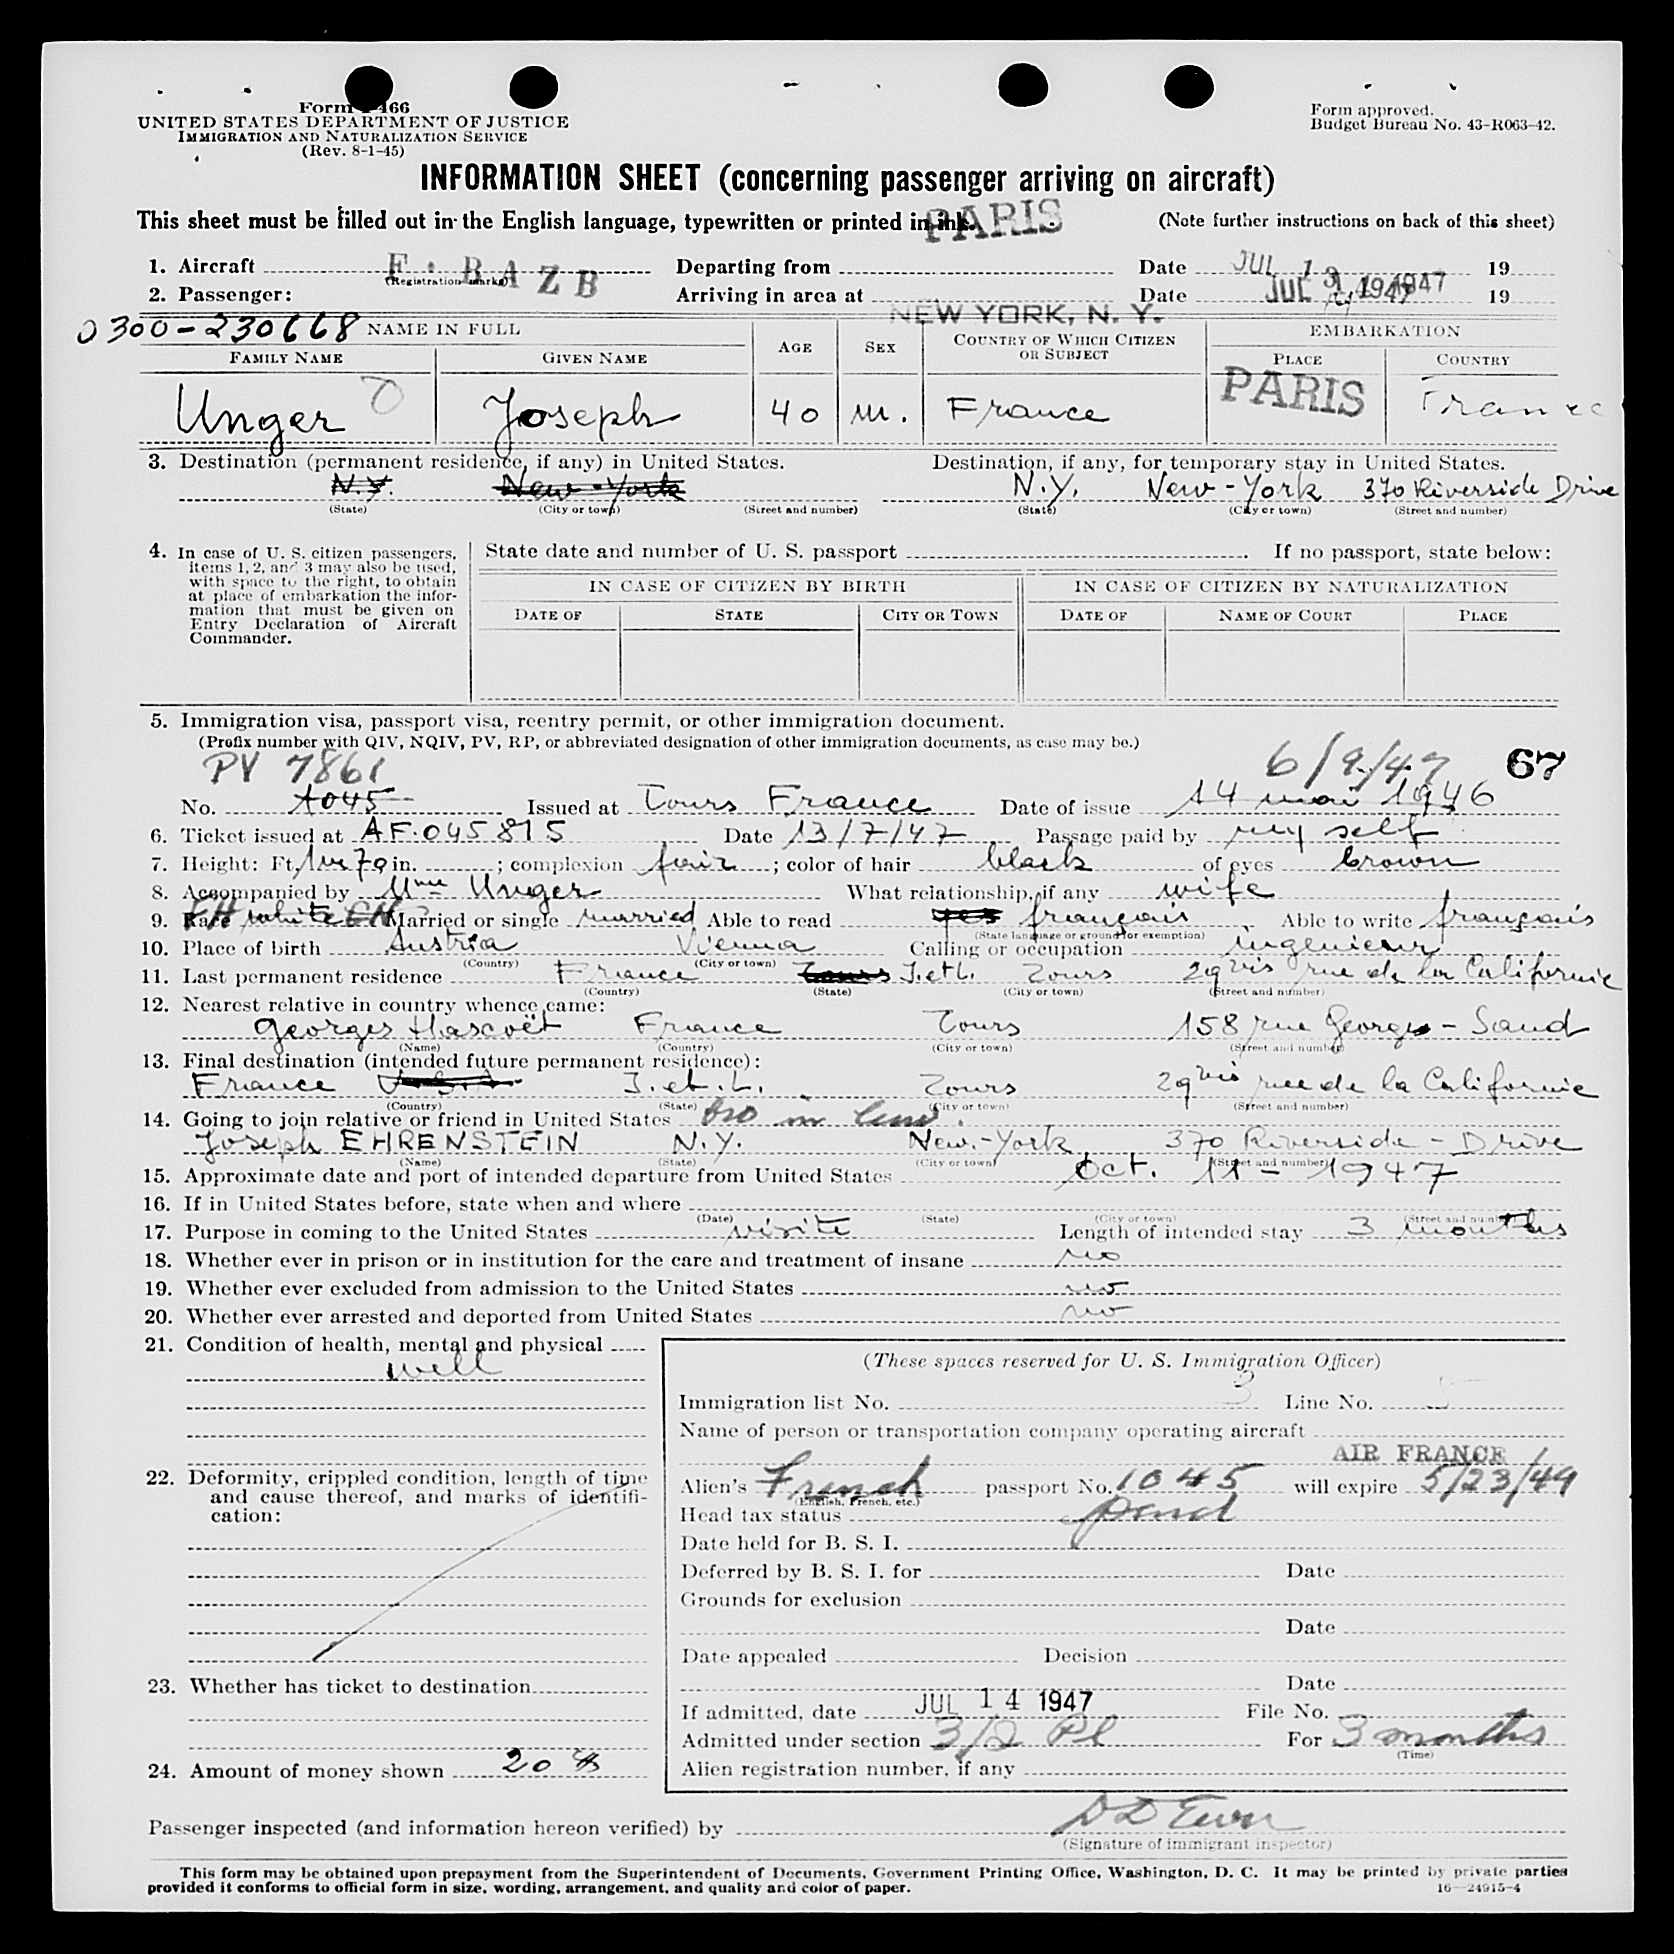 Form 466
UNITED STATES DEPARTMENT OF JUSTICE
IMMIGRATION AND NATURALIZATION SERVICE
(Rev. 8-1-45)
Form approved.
Budget Bureau No. 43-R063-42.
INFORMATION SHEET (concerning passenger arriving on aircraft)
This sheet must be filled out in the English language, typewritten or printed in ink.
PARIS
(Note further instructions on back of this sheet)
1. Aircraft F. BAZB Departing from Date JUL 13 1947 19
(Registration marks)
2. Passenger: Arriving in area at NEW YORK, N. Y. Date JUL 14 1947 19
0300-230668 NAME IN FULL AGE SEX COUNTRY OF WHICH CITIZEN OR SUBJECT EMBARKATION
FAMILY NAME GIVEN NAME PLACE COUNTRY
Unger Joseph 40 m. France PARIS France
3. Destination (permanent residence, if any) in United States. Destination, if any, for temporary stay in United States.
N.Y. New-York N.Y. New-York 370 Riverside Drive
(State) (City or town) (Street and number) (State) (City or town) (Street and number)
4. In case of U. S. citizen passengers, items 1, 2, and 3 may also be used, with space to the right, to obtain at place of embarkation the information that must be given on Entry Declaration of Aircraft Commander.
State date and number of U. S. passport If no passport, state below:
IN CASE OF CITIZEN BY BIRTH IN CASE OF CITIZEN BY NATURALIZATION
DATE OF STATE CITY OR TOWN DATE OF NAME OF COURT PLACE
5. Immigration visa, passport visa, reentry permit, or other immigration document.
(Prefix number with QIV, NQIV, PV, RP, or abbreviated designation of other immigration documents, as case may be.)
PV 7861 6/9/47 67
No. 1045 Issued at Tours France Date of issue 14 mai 1946
6. Ticket issued at AF.045815 Date 13/7/47 Passage paid by my self
7. Height: Ft. 1m70 in. ; complexion fair ; color of hair black of eyes brown
8. Accompanied by Mme Unger What relationship, if any wife
9. Race white Married or single married Able to read yes français Able to write français
(State language or ground for exemption)
10. Place of birth Austria Vienna Calling or occupation ingenieur
(Country) (City or town)
11. Last permanent residence France Tours I.et L. Tours 29 bis rue de la Californie
(Country) (State) (City or town) (Street and number)
12. Nearest relative in country whence came:
Georges Hascoët France Tours 158 rue Georges-Sand
(Name) (Country) (City or town) (Street and number)
13. Final destination (intended future permanent residence):
France I.et.L. Tours 29 bis rue de la Californie
(Country) (State) (City or town) (Street and number)
14. Going to join relative or friend in United States bro in law.
Joseph EHRENSTEIN N.Y. New.-York 370 Riverside-Drive
(Name) (State) (City or town) (Street and number)
15. Approximate date and port of intended departure from United States Oct. 11-1947
16. If in United States before, state when and where
(Date) (State) (City or town) (Street and number)
17. Purpose in coming to the United States visite Length of intended stay 3 months
18. Whether ever in prison or in institution for the care and treatment of insane no
19. Whether ever excluded from admission to the United States no
20. Whether ever arrested and deported from United States no
21. Condition of health, mental and physical
well
22. Deformity, crippled condition, length of time and cause thereof, and marks of identification:
23. Whether has ticket to destination
24. Amount of money shown 20 $
(These spaces reserved for U. S. Immigration Officer)
Immigration list No. 3 Line No. 5
Name of person or transportation company operating aircraft
AIR FRANCE
Alien's French passport No. 1045 will expire 5/23/49
(English, French, etc.)
Head tax status
Date held for B. S. I.
Deferred by B. S. I. for Date
Grounds for exclusion
Date
Date appealed Decision
Date
If admitted, date JUL 14 1947 File No.
Admitted under section 3/2 Pl For 3 months
(Time)
Alien registration number, if any
Passenger inspected (and information hereon verified) by
(Signature of immigrant inspector)
This form may be obtained upon prepayment from the Superintendent of Documents, Government Printing Office, Washington, D. C. It may be printed by private parties
provided it conforms to official form in size, wording, arrangement, and quality and color of paper.
16—24915-4